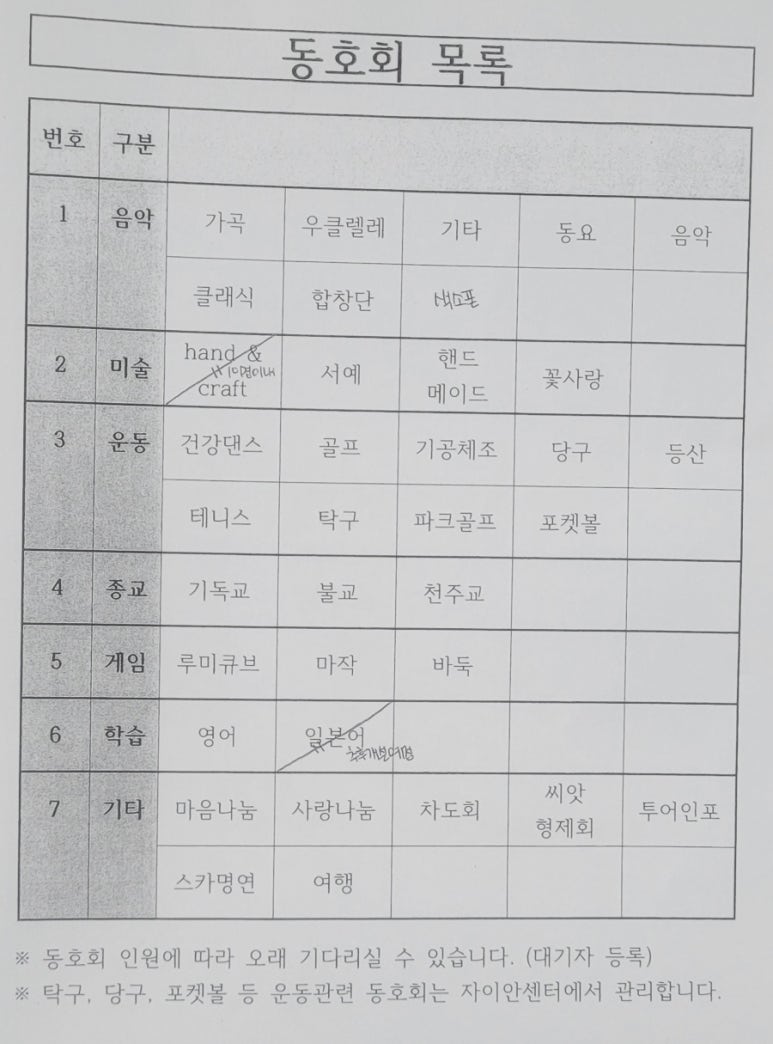 동호회 목록
번호 구분
1 음악 가곡 우클렐레 기타 동요 음악
클래식 합창단 색소폰
2 미술 hand & craft 서예 핸드 메이드 꽃사랑
3 운동 건강댄스 골프 기공체조 당구 등산
테니스 탁구 파크골프 포켓볼
4 종교 기독교 불교 천주교
5 게임 루미큐브 마작 바둑
6 학습 영어 일본어
7 기타 마음나눔 사랑나눔 차도회 씨앗 형제회 투어인포
스카명연 여행
※ 동호회 인원에 따라 오래 기다리실 수 있습니다. (대기자 등록)
※ 탁구, 당구, 포켓볼 등 운동관련 동호회는 자이안센터에서 관리합니다.